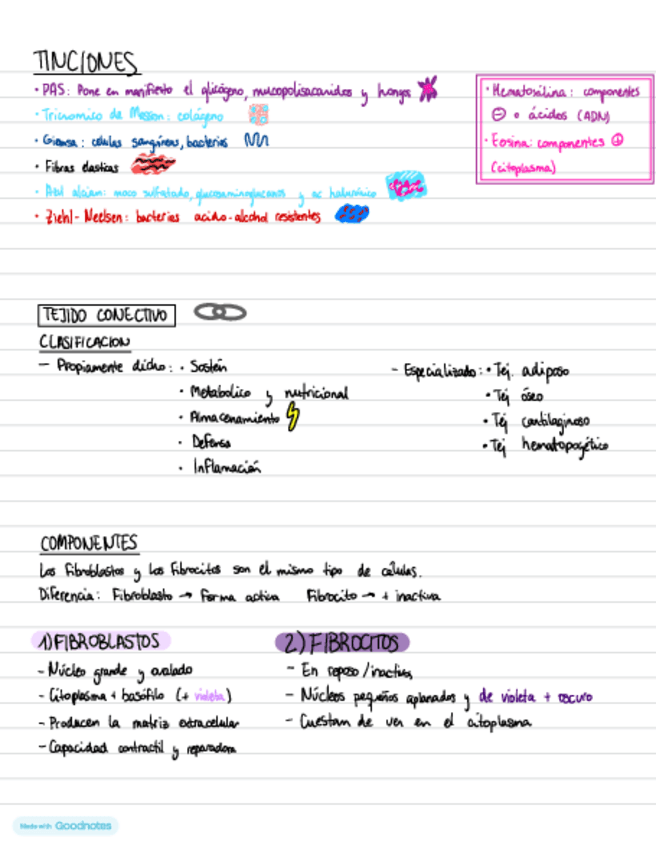 TINCIONES
· PAS: Pone en manifiesto el glicógeno, mucopolisacaridos y hongos
· Tricromico de Masson: colágeno
· Giemsa: celulas sangíneas, bacterias
· Fibras elasticas
· Azul alcian: moco sulfatado, glucosaminoglucanos y ac. halurónico
· Ziehl-Neelsen: bacterias acido-alcohol resistentes
· Hematoxilina: componentes
⊖ o ácidos (ADN)
· Eosina: componentes ⊕
(citoplasma)
TEJIDO CONECTIVO
CLASIFICACION
- Propiamente dicho: · Sostén
· Metabolico y nutricional
· Almacenamiento
· Defensa
· Inflamación
- Especializado: · Tej. adiposo
· Tej óseo
· Tej cartilaginoso
· Tej hematopoyético
COMPONENTES
Los fibroblastos y los fibrocitos son el mismo tipo de células.
Diferencia: Fibroblasto → forma activa Fibrocito → + inactiva
1) FIBROBLASTOS
- Núcleo grande y ovalado
- Citoplasma + basófilo (+ violeta)
- Producen la matriz extracelular
- Capacidad contractil y reparadora
2) FIBROCITOS
- En reposo/inactivos
- Núcleos pequeños aplanados y de violeta + oscuro
- Cuestan de ver en el citoplasma
Made with Goodnotes